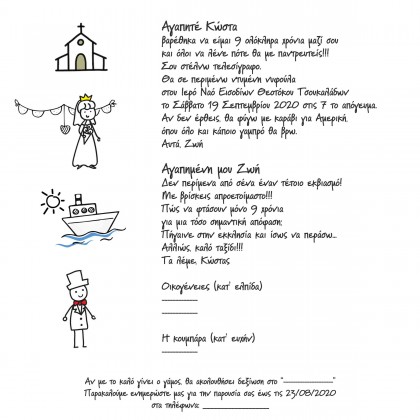 Αγαπητέ Κώστα
βαρέθηκα να είμαι 9 ολόκληρα χρόνια μαζί σου
και όλοι να λένε πότε θα με παντρευτείς!!!
Σου στέλνω τελεσίγραφο.
Θα σε περιμένω ντυμένη νυφούλα
στον Ιερό Ναό Εισοδίων Θεοτόκου Τσουκαλάδων
το Σάββατο 19 Σεπτεμβρίου 2020 στις 7 το απόγευμα.
Αν δεν έρθεις, θα φύγω με καράβι για Αμερική,
όπου όλο και κάποιο γαμπρό θα βρω.
Αυτά, Ζωή
Αγαπημένη μου Ζωή
Δεν περίμενα από σένα έναν τέτοιο εκβιασμό!
Με βρίσκεις απροετοίμαστο!!!
Πώς να φτάσουν μόνο 9 χρόνια
για μια τόσο σημαντική απόφαση;
Πήγαινε στην εκκλησία και ίσως να περάσω...
Αλλιώς, καλό ταξίδι!!!
Τα λέμε, Κώστας
Οικογένειες (κατ' ελπίδα)
________
________
Η κουμπάρα (κατ' ευχήν)
________
Αν με το καλό γίνει ο γάμος, θα ακολουθήσει δεξίωση στο "____________"
Παρακαλούμε ενημερώστε μας για την παρουσία σας έως τις 23/08/2020
στα τηλέφωνα: ________________